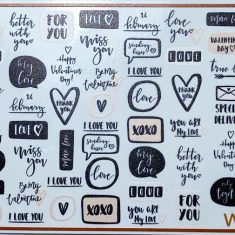 better
with
you
FOR
YOU
LOVE
14
february
love
you
more
LOVE
miss
you
sending
love
VALENTINE'S
DAY
hey
love
Happy
Valentines
Day
Be My
Valentine
love
true love
14
february
THANK
YOU
I LOVE YOU
XOXO
LOVE
SPECIAL
DELIVERY
LOVE
miss
you
sending
love
hey
love
better
with
you
hey
love
Happy
Valentines
Day
love
LOVE
Be My
Valentine
I LOVE YOU
you are
My Love
I LOVE YOU
XOXO
you are
My Love
FOR
YOU
W